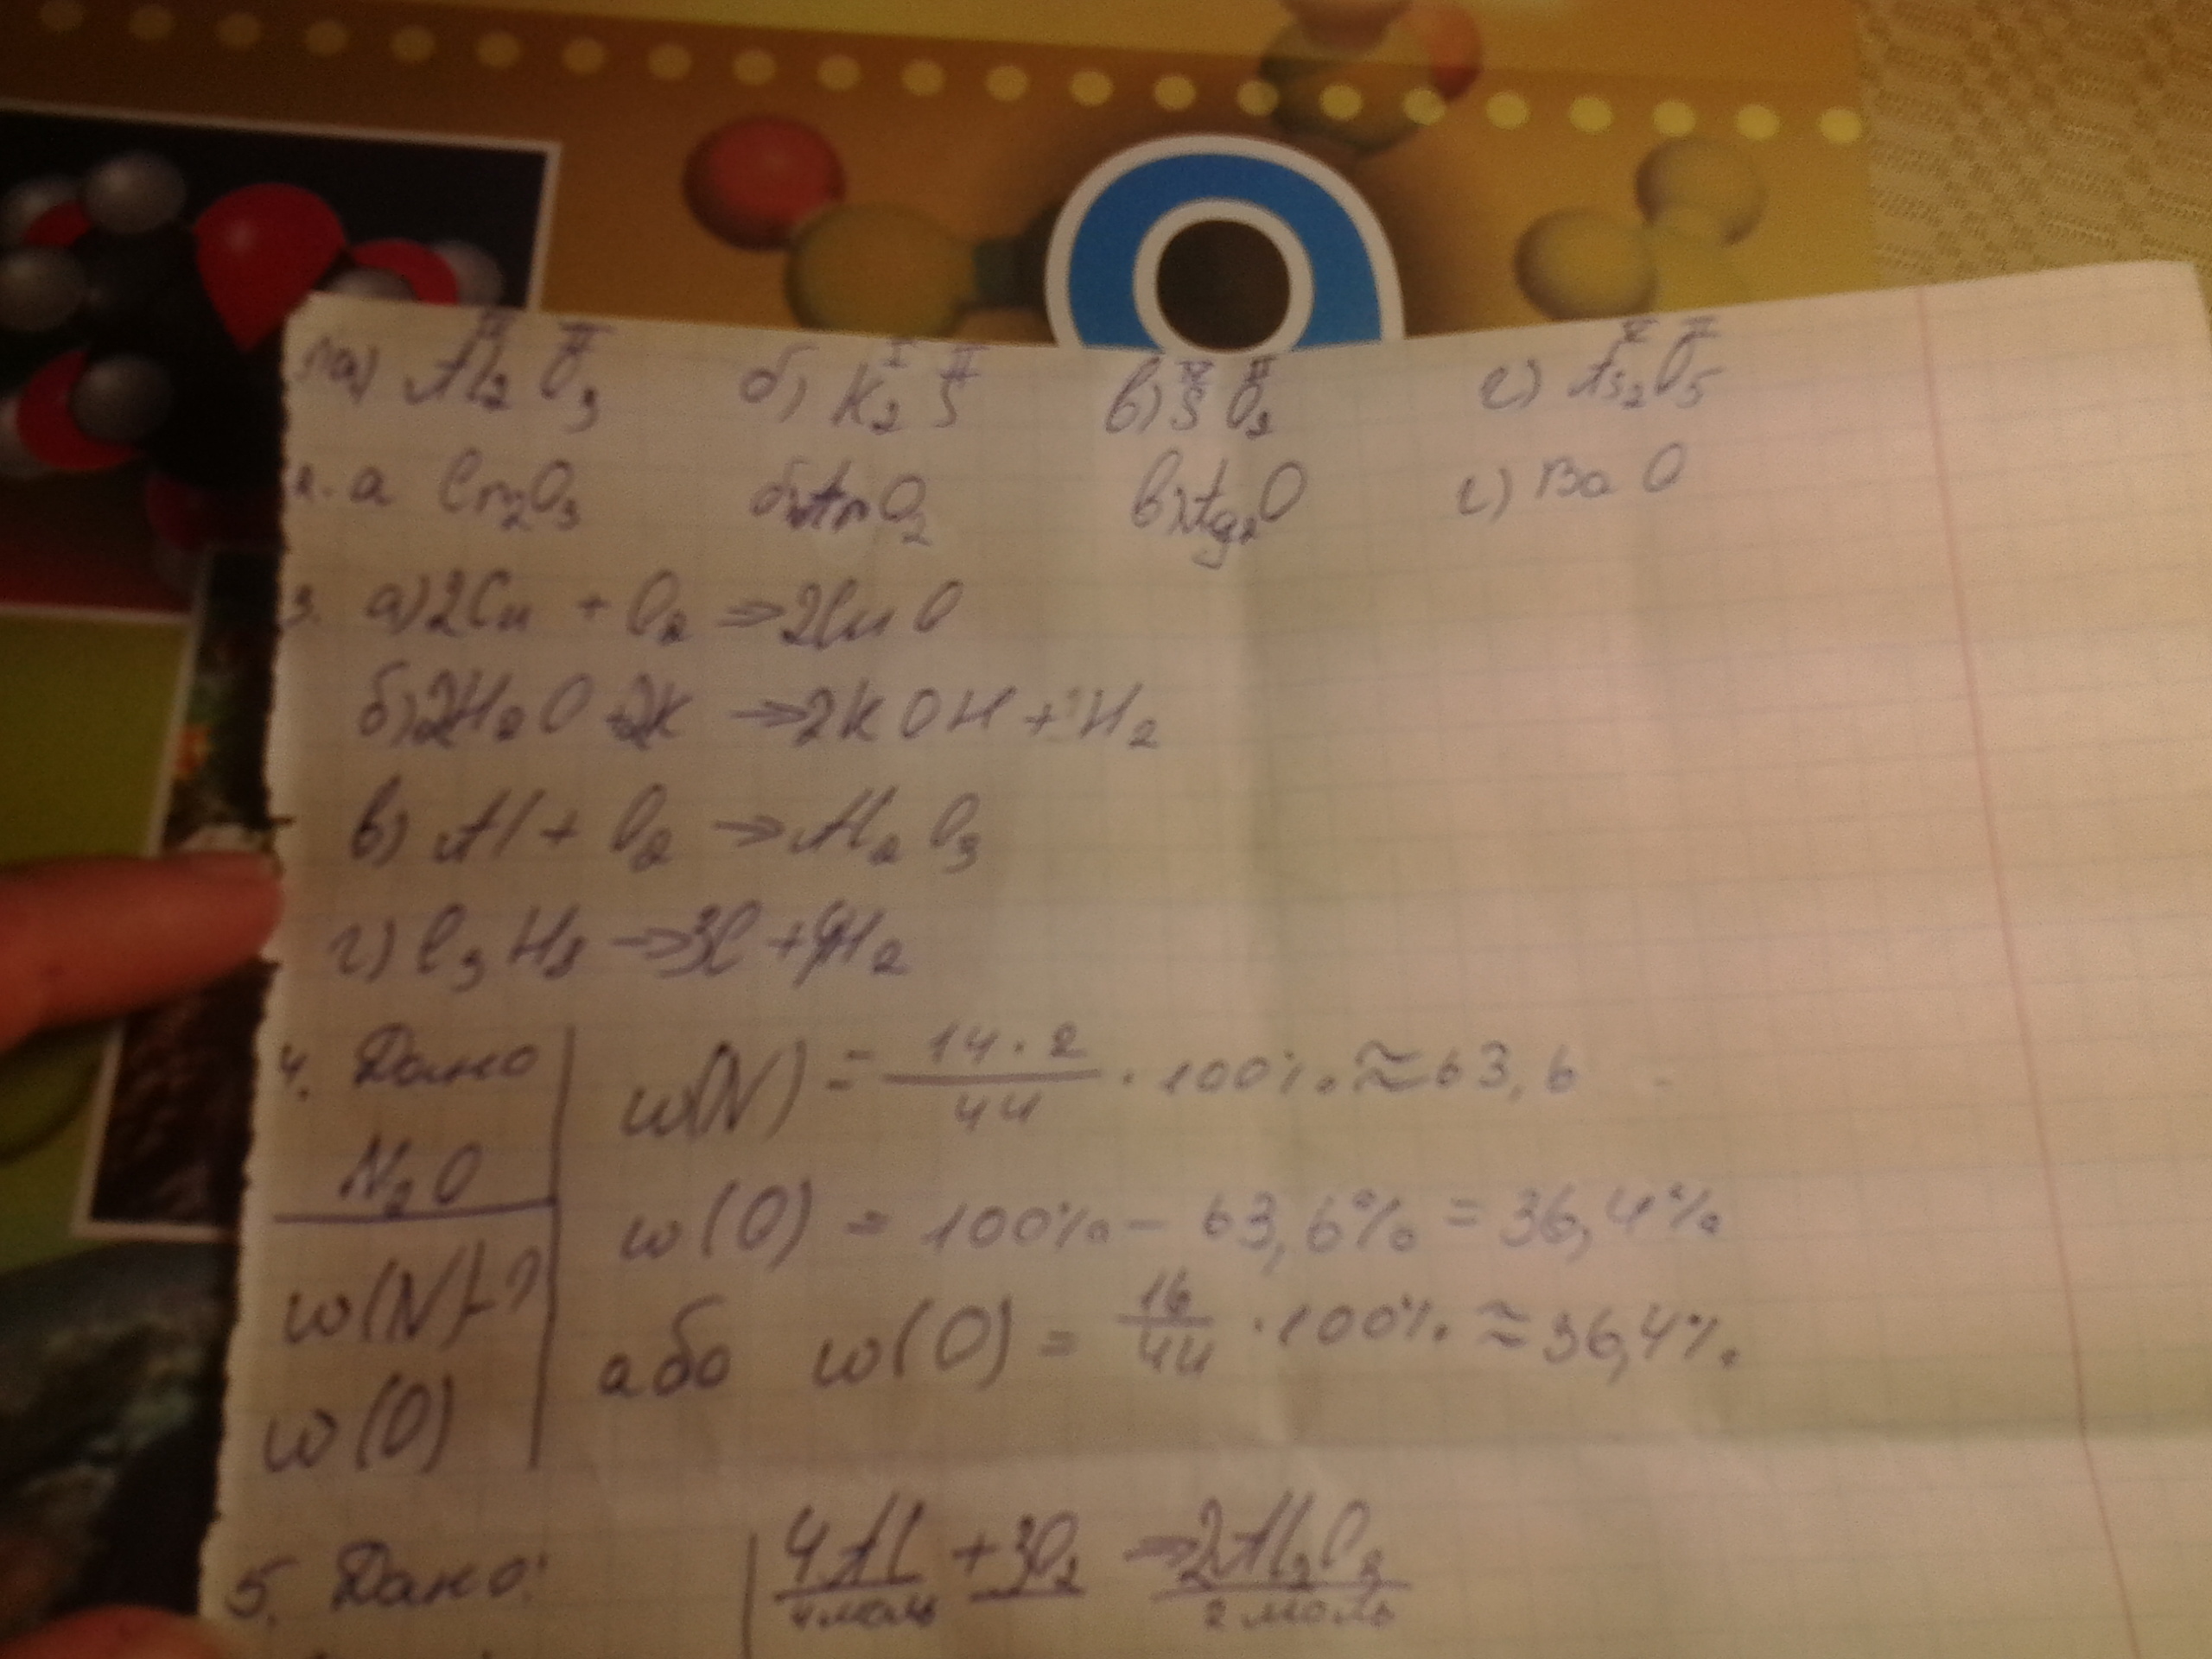 а) Al₂ O₃ б) K₂ S в) S O₃ г) As₂O₅
2. а Cr₂O₃ б) O₂ в) Ag₂O г) Ba O
3. а) 2Cu + O₂ → 2Cu O
б) 2H₂O + 2K → 2K OH + H₂
в) Al + O₂ → Al₂ O₃
г) C₃ H₈ → 3C + 4H₂
4. Дано
N₂O
w(N) - ?
w(O)
w(N) = 14 · 2 / 44 · 100% ≈ 63,6
w(O) = 100% - 63,6% = 36,4%
або w(O) = 16 / 44 · 100% ≈ 36,4%
5. Дано:
4Al + 3O₂ → 2Al₂O₃
4 моль 2 моль